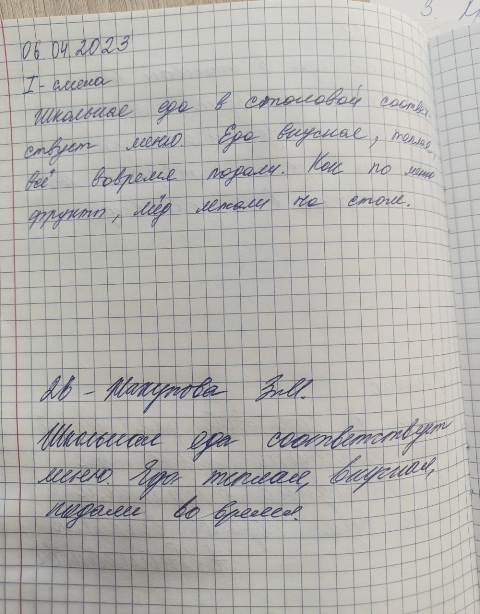 06.04.2023
I - смена
Школьная еда в столовой соответ-
ствует меню. Еда вкусная, теплая,
всё вовремя подали. Как по меню
фрукты, мёд лежали на столе.
2Б - Жакупова З.М.
Школьная еда соответствует
меню. Еда теплая, вкусная,
подали во время.